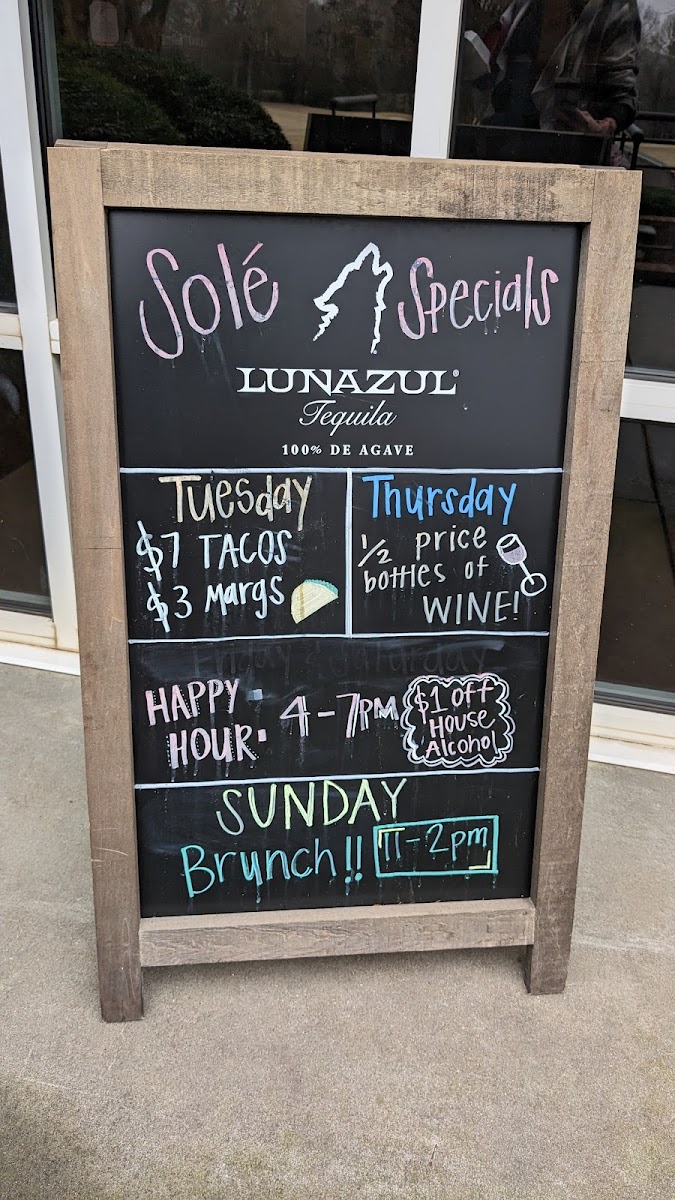 Solé Specials
LUNAZUL®
Tequila
100% DE AGAVE
Tuesday
$7 TACOS
$3 Margs
Thursday
1/2 price
bottles of
WINE!
Friday & Saturday
HAPPY
HOUR:
4-7PM
$1 off
House
Alcohol
SUNDAY
Brunch!! 11-2pm